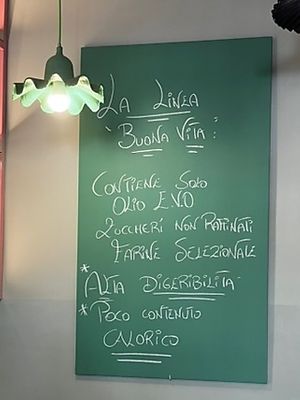 LA LINEA
"BUONA VITA":
CONTIENE SOLO
OLIO EVO
ZUCCHERI NON RAFFINATI
FARINE SELEZIONATE
* ALTA DIGERIBILITÀ
* POCO CONTENUTO
CALORICO